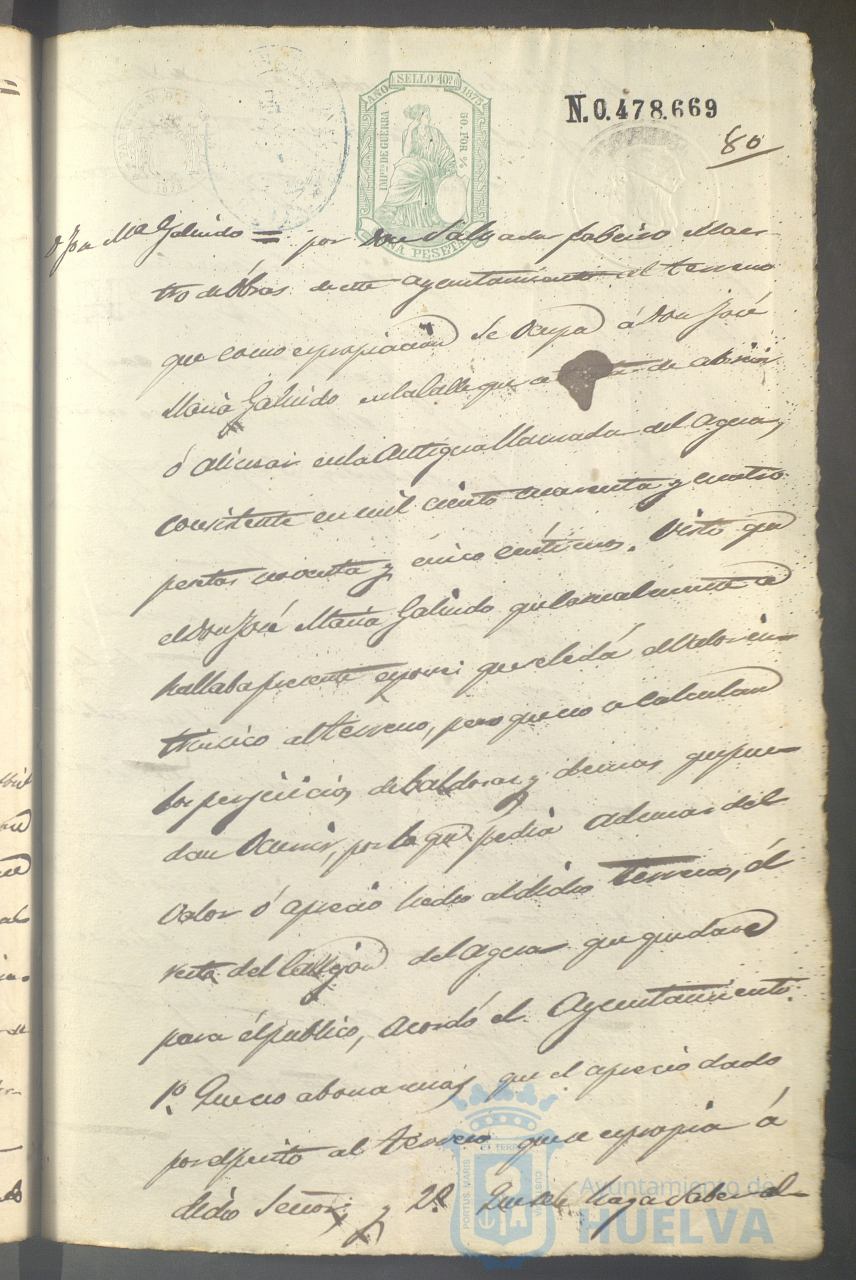 AÑO SELLO 10º 1875
IMPTO DE GUERRA
50. POR %
UNA PESETA
N.0.478.669
80
Mª Galindo = por Don Salvador Maes-
tro de Obras de este Ayuntamiento el terreno
que como expropiacion se Ocupa á Don José
Maria Galindo en la Calle que de abrir
ó alinear en la Antigua llamada del Agua,
consistente en mil ciento cuarenta y cuatro
pesetas noventa y cinco centimos. Visto que
el Don José Maria Galindo que se
hallaba presente que se le dá el valor in-
trinsico al terreno, pero que no se calculan
los perjuicios de baldosas y demas que pue-
dan Ocurrir, por lo que pedia ademas del
valor ó aprecio hecho al dicho terreno, el
resto del Callejon del Agua que quedare
para el publico, acordó el Ayuntamiento.
1º Que no abona mas que el aprecio dado
por el perito al terreno que se expropia á
dicho Señor, y 2º Que se le haga saber al
PORTUS MARIS
ET TERRAE
CUSTODIA
Ayuntamiento de
HUELVA